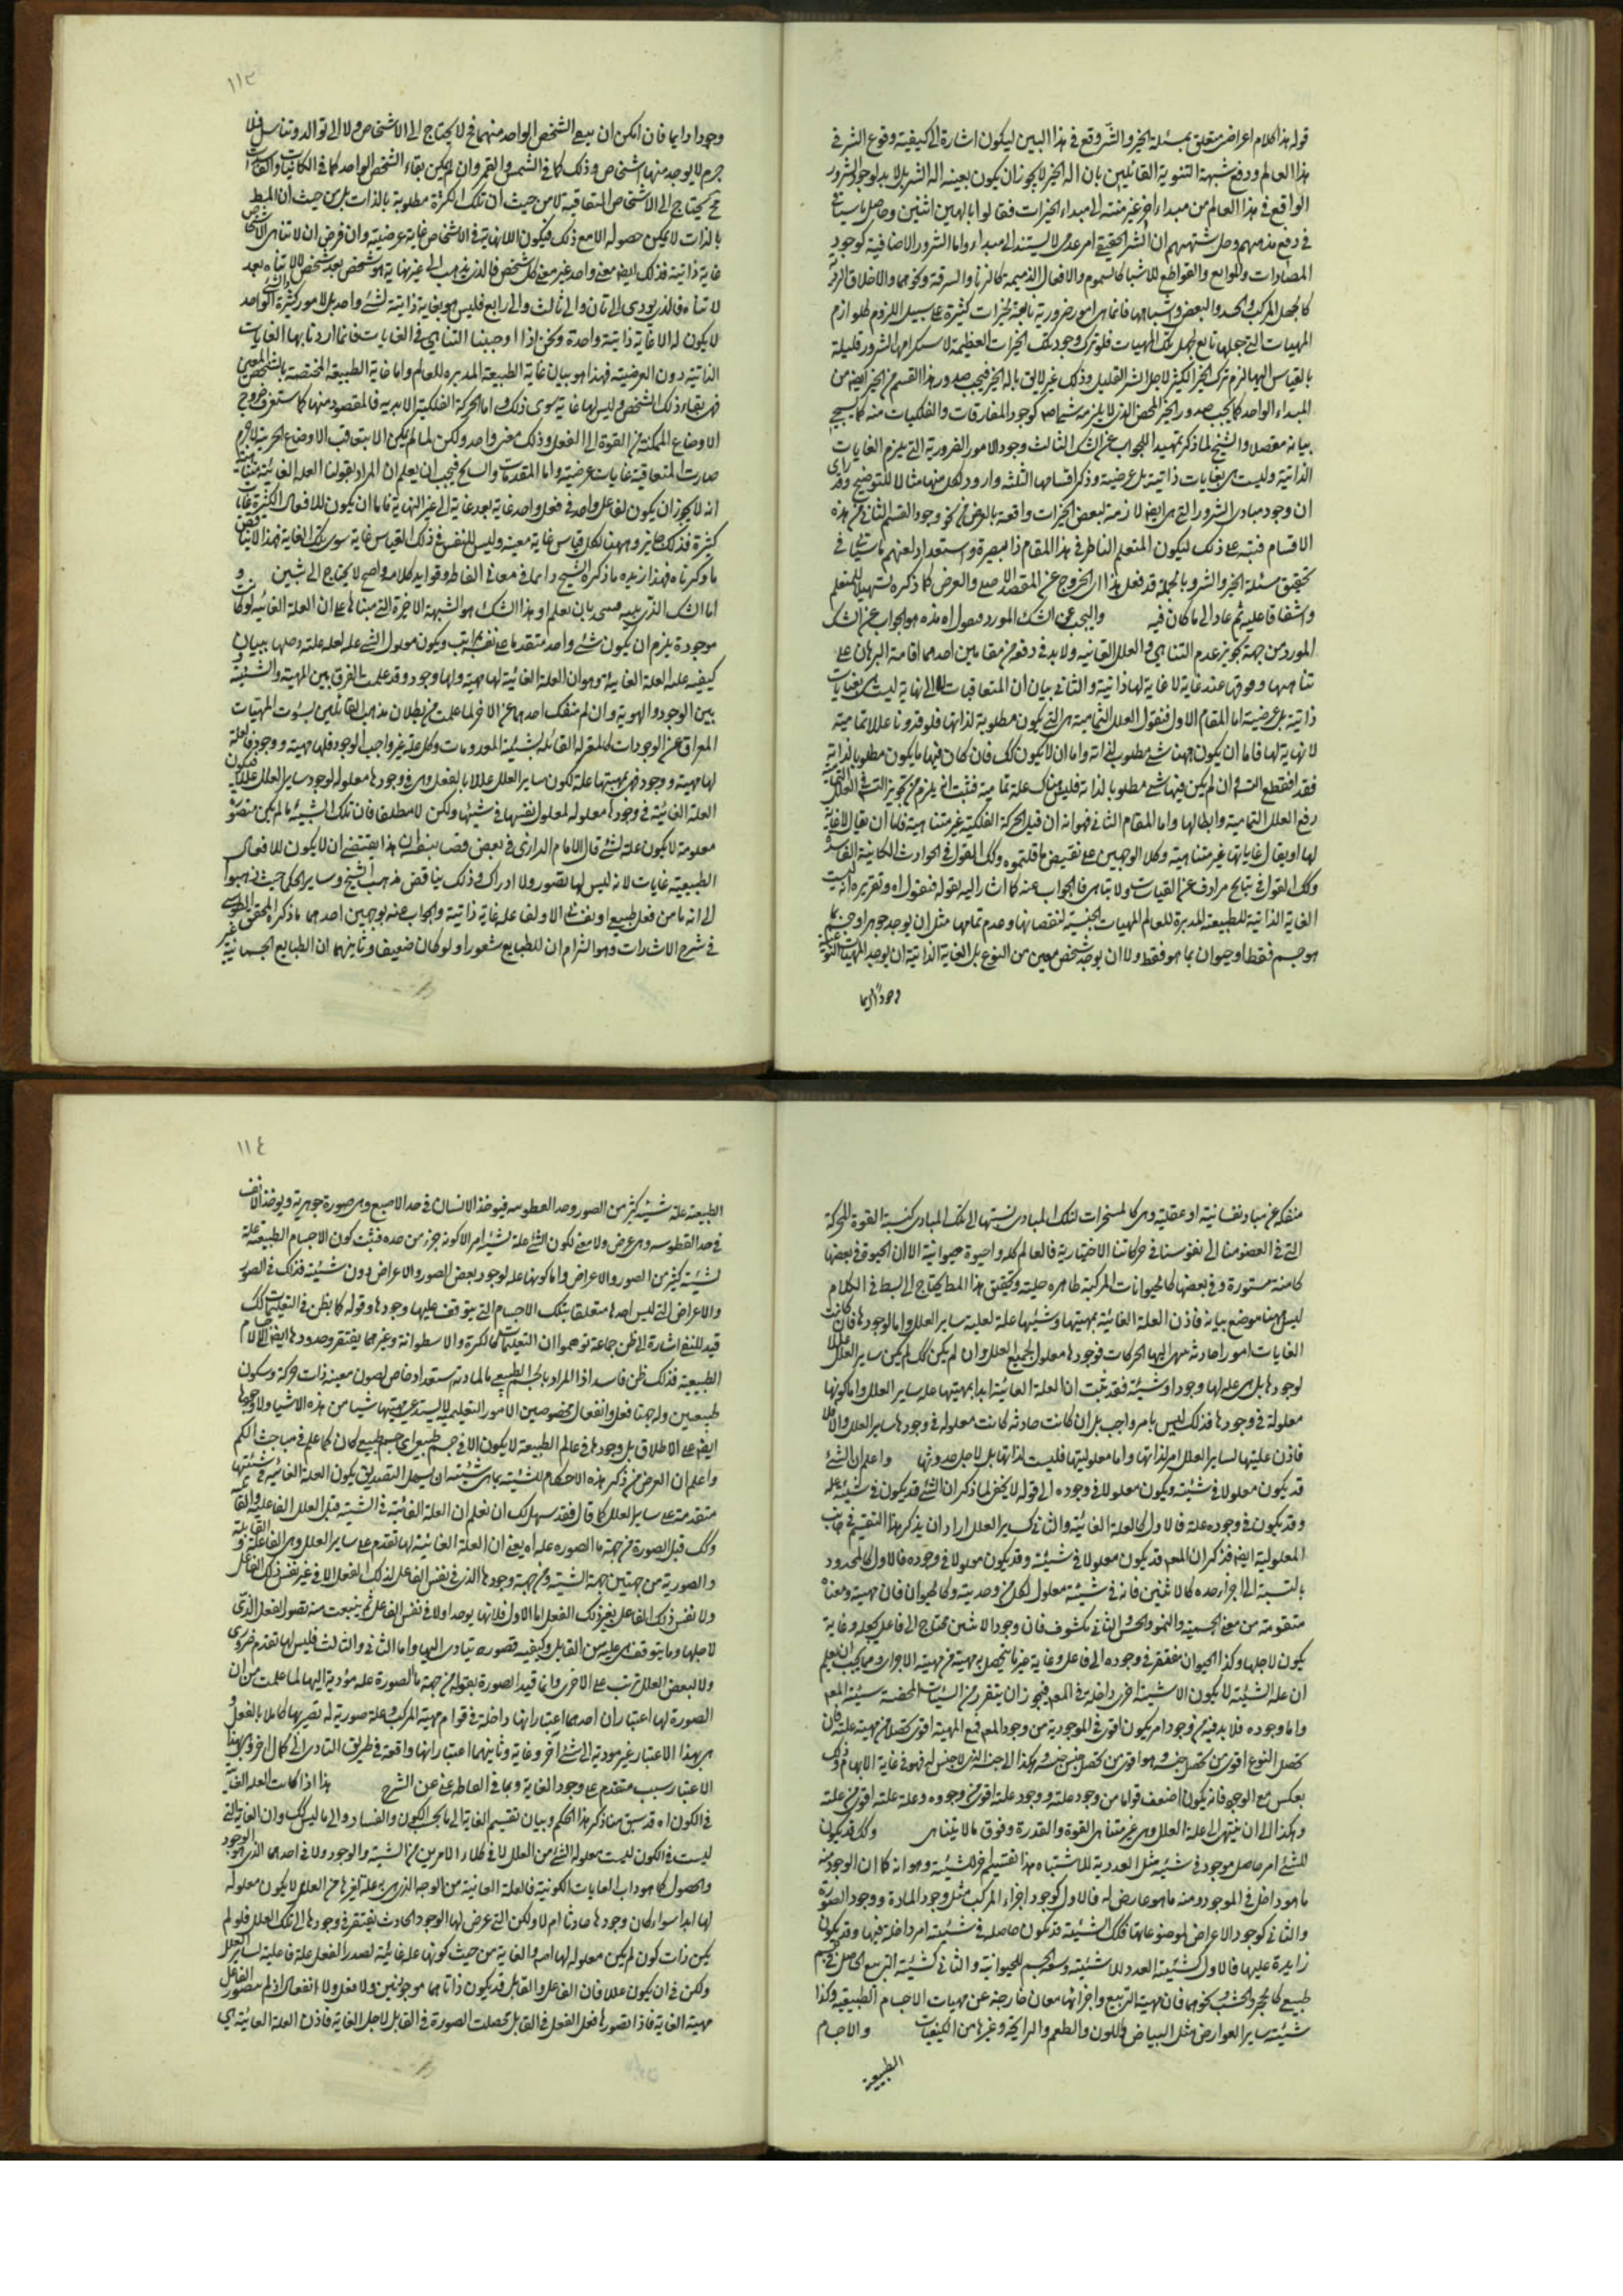 قوله هذا كلام اعراض متعلق بمسئلة الخير والشر وقع في هذا البين ليكون اشارة الى كيفية وقوع الشر في
هذا العالم ودفع شبهة الثنوية القائلين بان اله الخير لا يجوز ان يكون بعينه اله الشر بل لا بد لوجود الشرور
الواقع في هذا العالم من مبداء اخر غير منته الى مبداء الخيرات فقالوا بالهين اثنين وحاصل ما سياتي
في دفع مذهبهم وحل شبهتهم ان الشر الحقيقي امر عدمي لا يستند الى مبداء واما الشرور الاضافية كوجود
المضادات والموانع والقواطع للاشياء كالسموم والافعال الذميمة كالزنا والسرقة ونحوهما والاخلاق الردية
كالجهل المركب والحسد والبعض واشباهها فانما هي امور ضرورية تابعة لخيرات كثيرة على سبيل اللزوم كلوازم
المهيات التي جعلها تابع لجعل تلك المهيات فلو ترك وجود تلك الخيرات العظيمة لاستلزامها لشرور قليلة
بالقياس اليها لزم ترك الخير الكثير لاجل الشر القليل وذلك غير لايق باله الخير فيجب صدور هذا القسم من الخير ايضا من
المبداء الواحد كما يجب صدور الخير المحض الذي لا يلزمه شر اصلا كوجود المفارقات والفلكيات منه كما سيجئ
بيانه مفصلا والشيخ لما ذكر تمهيد الجواب عن الشك الثالث وجود الامور الضرورية التي يلزم الغايات
الذاتية وليست هي بغايات ذاتية بل عرضية وذكر اقسامها الثلثة واورد لكل منها مثالا للتوضيح وقد راى
ان وجود مبادى الشرور التي هي ايضا لازمة لبعض الخيرات واقعة بالعرض من نحو وجود القسم الثاني من هذه
الاقسام فنبه على ذلك ليكون المتعلم الناظر في هذا المقام ذا بصيرة واستعداد لفهم ما سيأتي في
تحقيق مسئلة الخير والشر وبالجملة قد فعل هذا اى الخروج عن المقصد الاصلي والعرض كما ذكره تسهيلا للمتعلم
واشفاقا عليه ثم عاد الى ما كان فيه والجواب عن الشك المورد فنقول اه هذه هو الجواب عن الشك
المورد من جهة تجويز عدم التناهي في العلل الغائية ولا بد في دفعه من مقامين احدهما اقامة البرهان على
تناهيها ووقوفها عند غاية لا غاية لها ذاتية والثاني بيان ان المتعاقبات الى لا نهاية ليست هي بغايات
ذاتية بل عرضية اما المقام الاول فنقول العلل التمامية هي التي يكون مطلوبة لذاتها فلو قدرنا عللا تمامية
لا نهاية لها فاما ان يكون ههنا شئ مطلوب لذاته واما ان لا يكون كك فان كان فيها ما يكون مطلوبا لذاته
فقد انقطع التس وان لم يكن فيها شئ مطلوبا لذاته فليس هناك علة تمامية فثبت انه يلزم من تجويز التس في العلل التمامية
رفع العلل التمامية وابطالها واما المقام الثاني فهو انه ان قيل الحركة الفلكية غير متناهية فاما ان يقال لا غاية
لها او يقال غاياتها غير متناهية وكلا الوجهين على نقيض ما قلتموه وكك القول في الحوادث الكائنية الفاسدة
وكك القول في نتايج مترادف عن القياسات ولا يتناهى فالجواب عنه كما اشار اليه بقوله فنقول اه وتقريره ليست
الغاية الذاتية للطبيعة المدبرة للعالم المهيات الجنسية لنقصانها وعدم تمامها مثل ان يوجد جوهر او جسم بما
هو جسم فقط او حيوان بما هو فقط ولا ان يوجد شخص معين من النوع بل الغاية الذاتية ان يوجد المهيات النوعية
وجودا دايما
١١٣
وجودا دايما فان امكن ان يبقى الشخص الواحد منهما فح لا يحتاج الى الاشخاص ولا الى توالد وتناسل فلا
جرم لا يوجد منها اشخاص وذلك كما في الشمس والقمر وان لم يكن بقاء الشخص الواحد كما في الكائنات والفاسدات
فح يحتاج الى الاشخاص المتعاقبة لا من حيث ان تلك الكثرة مطلوبة بالذات بل من حيث ان المط
بالذات لا يمكن حصوله الا مع ذلك فيكون اللانهاية في الاشخاص غاية عرضية وان فرض ان لا تناهى الاشخاص
غاية ذاتية فذلك ايضا معنى واحد غير معنى كل شخص فالذي يذهب الى غير نهاية هو شخص بعد شخص لا لا تناه بعد
لا تناه فالذي يودى الى ثان والى ثالث والى رابع فليس هو بغاية ذاتية لشئ واحد بل لامور كثيرة الواحد
لا يكون له الا غاية ذاتية واحدة ونحن اذا اوجبنا التناهي في الغايات فانما اردنا بها الغايات
الذاتية دون العرضية فهذا هو بيان غاية الطبيعة المدبرة للعالم واما غاية الطبيعة المختصة بالشخص المعين
فهى بقاء ذلك الشخص وليس لها غاية سوى ذلك واما الحركة الفلكية الابدية فالمقصود منها كما ستعرف خروج
الاوضاع الممكنة من القوة الى الفعل وذلك معنى واحد ولكن لما لم يكن الا بتعاقب الاوضاع الجزئية لا جرم
صارت المتعاقبة غايات عرضية واما المقدمات والنتايج فيجب ان يعلم ان المراد بقولنا العلة الغائية متناهية
انه لا يجوز ان يكون لفاعل واحد في فعل واحد غاية بعد غاية الى غير النهاية فاما ان يكون للافعال الكثيرة غايات
كثيرة فذلك جايز وههنا لكل قياس غاية معينة وليس للنفس في ذلك القياس غاية سوى تلك الغاية فهذا لا يناقض
ما ذكرناه فهذا زبدة ما ذكره الشيخ دائما في معاني الفاظ وفوايد كلامه واضح لا يحتاج الى تبين و
اما الشك الذي يليه فينحل بان يعلم اه هذا الشك هو الشبهة الاخيرة التي مبناها على ان العلة الغائية لو كانت
موجودة يلزم ان يكون شئ واحد متقدما على نفسه بمراتب ويكون معلول الشئ علة لعلة علته وحلها ببيان
كيفية علية العلة الغائية وهو ان العلة الغائية لها مهية ولها وجود وقد علمت الفرق بين المهية والشيئية و
بين الوجود والهوية وان لم ينفك احدهما عن الاخر لما علمت من بطلان مذهب القائلين بثبوت المهيات
المعراة عن الوجودات كالمعتزلة القائلة بشيئية المعدومات وكل علة غير واجب الوجود فلها مهية ووجود فالعلة
لها مهية ووجود فهى بمهيتها علة لكون ساير العلل عللا بالفعل وهى في وجودها معلولة لوجود ساير العلل عللا فيكون
العلة الغائية في وجودها معلولة لمعلول نفسها في شيئيتها ولكن لا مطلقا فان تلك الشيئية ما لم يكن متصورة
معلومة لا يكون علة لشئ قال الامام الرازى في بعض تصانيفه ان هذا يقتضي ان لا يكون للافعال
الطبيعية غايات لانه ليس لها تصور ولا ادراك وذلك يناقض مذهب الشيخ وساير الحكماء حيث ذهبوا
الى انه ما من فعل طبيعي او نفساني الا ولفاعله غاية ذاتية والجواب عنه بوجهين احدهما ما ذكره المحقق الطوسي
في شرح الاشارات وهو التزام ان للطبايع شعورا ولو كان ضعيفا وثانيهما ان الطبايع الجسمانية غير
منفكة عن مباد نفسانية او عقلية وهي كالمسخرات لتلك المبادى نسبتها الى تلك المبادى كنسبة القوة المحركة
التي في العضو منا الى نفوسنا في حركاتنا الاختيارية فالعالم كله واحيوة حيوانية الا ان الحيوة في بعضها
كامنة مستورة وفي بعضها كالحيوانات المركبة ظاهرة جلية وتحقيق هذا المط يحتاج الى بسط في الكلام
ليس ههنا موضع بيانه فاذن العلة الغائية بمهيتها وشيئيتها علة لعلية ساير العلل واما لوجودها فان كانت
الغايات امورا حادثة ينتهى اليها الحركات فوجودها معلول لجميع العلل وان لم يكن كك لم يكن ساير العلل عللا
لوجودها بل هي علة لها وجودا وشيئية فقد ثبت ان العلة الغائية ابدا بمهيتها علة ساير العلل واما كونها
معلولة في وجودها فذلك ليس بامر واجب بل ان كانت حادثة كانت معلولة في وجودها ساير العلل والا فلا
فاذن عليتها لساير العلل امر لذاتها واما معلوليتها فليست لذاتها بل لاجل حدوثها واعلم ان الشئ
قد يكون معلولا في شيئيته ويكون معلولا في وجوده الى قوله لا يخفى لما ذكر ان الشئ قد يكون في شيئيته علة
وقد يكون في وجوده علة فالاول كالعلة الغائية والثاني كساير العلل اراد ان يذكر هذا التقسيم في جانب
المعلولية ايضا فذكر ان المع قد يكون معلولا في شيئيته وقد يكون معلولا في وجوده فالاول كالمحدود
بالنسبة الى اجزاء حده كالاثنين فانه في شيئيته معلول لكل من وحديته وكالحيوان فان مهيته ومعناه
متقومة من معنى الجسمية والنمو والحس والثاني مكشوف فان وجود الاثنين محتاج الى فاعل يجعله وغاية
يكون لاجلها وكذا الحيوان مفتقر في وجوده الى فاعل وغاية غير ما يتحصل به مهيته من مهية الاجزاء ومما يجب ان يعلم
ان علة الشيئية لا يكون الا شيئية اخرى داخلة في المع فيجوز ان يتقرر من الشيئيات المحضة شيئية المع
واما وجوده فلا بد فيه من وجود امر يكون اقوى في الموجودية من وجود المع فمع المهية اقوى تحصلا من مهية علته فان
تحصل النوع اقوى من تحصل جنسه وهو اقوى من تحصل جنس جنسه وهكذا الى الاجناس الذي لا جنس له فهو في غاية الابهام وذلك
بعكس مع الوجود فانه يكون اضعف قواما من وجود علته ووجود علته اقوى من وجوده وعلة علته اقوى من علته
وهكذا الى ان ينتهى الى علة العلل وهي غير متناهى القوة والقدرة وفوق ما لا يتناهى وكك قد يكون
للشئ امر حاصل موجود في شيئيته مثل العددية للاشتباه هذا تقسيم اخر للشيئية وهو انه كما ان الوجود منه
ما هو داخل في الموجود ومنه ما هو عارض له فالاول كوجود اجزاء المركب مثل وجود المادة ووجود الصورة
والثاني كوجود الاعراض لموضوعاتها فكك الشيئية قد يكون حاصلة في شيئيته امر داخلة فيها وقد يكون
زايدة عليها فالاول كشيئية العدد للاثنينية ومعنى الجسم للحيوانية والثاني كشيئية التربيع الحاصل في جسم
طبيعي كالحجر والخشب ونحوهما فان مهية التربيع واجزائها معان خارجة عن مهيات الاجسام الطبيعية وكذا
شيئية ساير العوارض مثل البياض واللون والطعم والرايحة وغيرها من الكيفيات والاجسام
الطبيعية
١١٤
الطبيعية علة شيئية كثير من الصور وحد الفطوسة فيوخذ الانسان في حد الاصبع وهي صورة جوهرية ويوخذ الانف
في حد الفطوسة وهي عرض ولا معنى لكون الشئ علة لشيئية امر الا كونه جزء من حده فثبت كون الاجسام الطبيعية علة
لشيئية كثير من الصور والاعراض واما كونها علة لوجود بعض الصور والاعراض دون شيئيته فذلك في الصور
والاعراض التي ليس احدها متعلقا بتلك الاجسام التي يتوقف عليها وجودها وقوله كما يظن في التعليميات كك
قيد للنفي اشارة الى ظن جماعة توهموا ان التعليميات كالكرة والاسطوانة وغيرهما يفتقر وحدودها ايضا الى الاجسام
الطبيعية فذلك ظن فاسد اذ المراد بالجسم الطبيعي ما لمادته استعداد خاص لصون معينة ذات حركة وسكون
طبيعيين وله جهتا فعل وانفعال مخصوصين والامور التعليمية لا يستدعى مهيتها شيئا من هذه الاشياء ولا وجودها
ايضا على الاطلاق بل وجودها في عالم الطبيعة لا يكون الا في جسم طبيعي اى جسم طبيعي كان كما علم في مباحث الكم
واعلم ان الغرض من ذكر هذه الاحكام للشيئية بما هي شيئية ان يسهل التصديق بكون العلة الغائية في شيئيتها
متقدمة على ساير العلل كما قال فقد سهل لك ان تعلم ان العلة الغائية في الشيئية قبل العلل الفاعلية والقابلية
وكك قبل الصورة من جهة ما الصورة علة اه يعني ان العلة الغائية لها تقدم على ساير العلل وهي الفاعلة والقابلة
والصورية من جهتين جهة الشيئية ومن جهة وجودها الذي في نفس الفاعل لذلك الفعل لا في غير نفس ذلك الفاعل
ولا نفس ذلك الفاعل بغير ذلك الفعل اما الاول فلانها يوجد اولا في نفس الفاعل ثم ينبعث منه تصور الفعل الذي
لاجلها وما يتوقف هي عليه من القابل وكيفية تصوره يتادى اليها واما الثاني والثالث فليس لها تقدم ضرورى
ولا لبعض العلل ترتب على الاخرى وانما قيد الصورة بقوله من جهة ما الصورة علة مؤدية اليها لما علمت من ان
الصورة لها اعتباران احدهما اعتبار انها داخلة في قوام مهية المركب وعلة صورية له تصير بها كاملا بالفعل و
هي بهذا الاعتبار غير مودية الى شئ آخر وغاية وثانيهما اعتبار انها واقعة في طريق التادى الى كمال اخر وهي بهذا
الاعتبار سبب متقدم على وجود الغاية وباقى الفاظ غنى عن الشرح هذا اذا كانت العلة الغائية
في الكون اه قد سبق منا ذكر هذا الحكم وبيان تقسيم الغاية الى ما تحت الكون والفساد والى ما ليس كك وان الغاية التي
ليست في الكون ليست معلولة لشئ من العلل لا في كلا الامرين من الشيئية والوجود ولا في احدهما الذي هو الوجود
والحصول كما هو داب الغايات الكونية فالعلة الغائية من الوجه الذي هي به علة لغيرها من العلل لا يكون معلولة
لها ابدا سواء كان وجودها حادثا ام لا ولكن التي عرض لها الوجود الحادث يفتقر في وجودها الى تلك العلل فلو لم
يكن ذات كون لم يكن معلولة لها اصلا والغاية من حيث كونها علة غائية لصدور الفعل علة فاعلية لساير العلل
ولكن في ان يكون عللا فان الفاعل والقابل قد يكون ذاتاهما موجودتين ولا فعل ولا انفعال اذ لم يتصور الفاعل
مهية الغاية فاذا تصورها فعل الفعل في القابل حصلت الصورة في القابل لاجل الغاية فاذن العلة الغائية هي